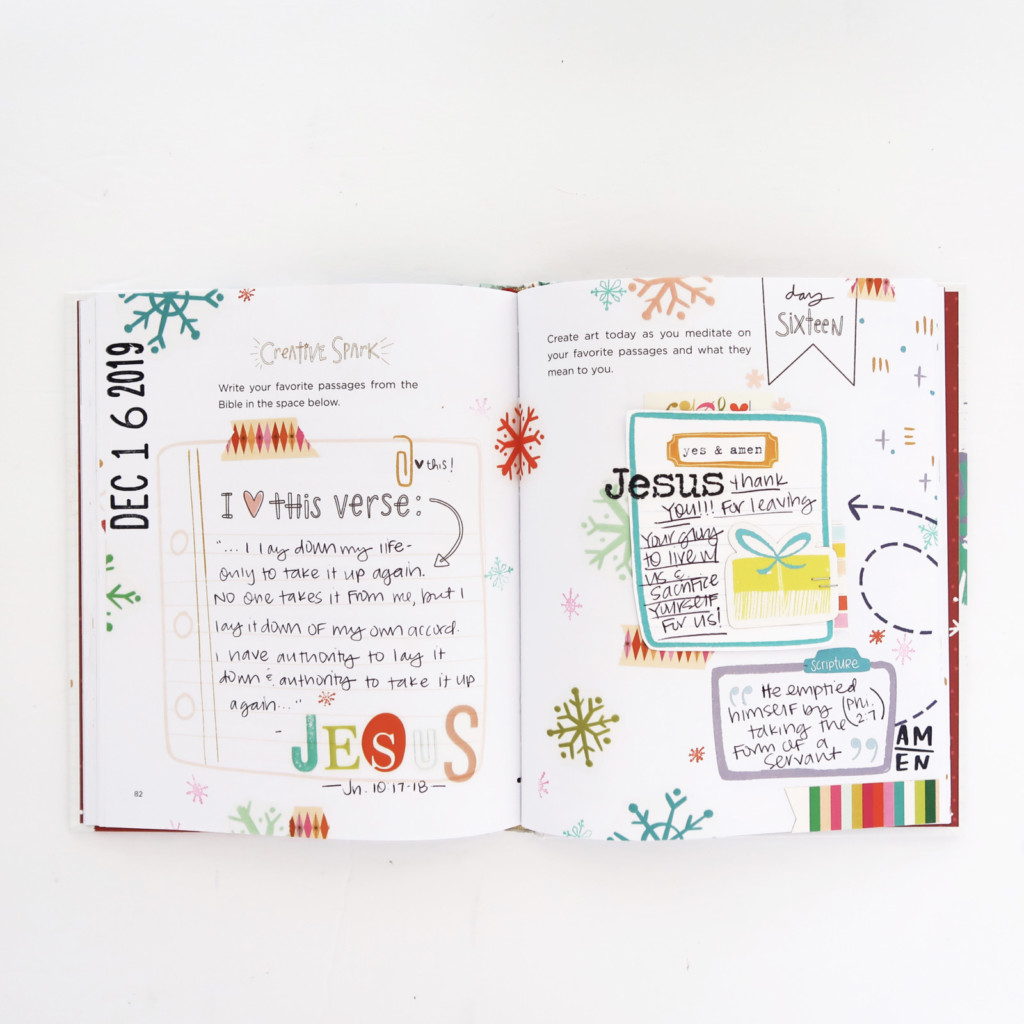 DEC 16 2019
Creative Spark
Write your favorite passages from the
Bible in the space below.
♥ this!
I ♥ this verse:
"...I lay down my life-
only to take it up again.
No one takes it from me, but I
lay it down of my own accord.
I have authority to lay it
down & authority to take it up
again..."
- JESUS
—Jn. 10:17-18—
82
day
Sixteen
Create art today as you meditate on
your favorite passages and what they
mean to you.
yes & amen
Jesus thank
you!!! For leaving
your glory
to live in
us &
sacrifice
yourself
for us!
scripture
"He emptied
himself by (Phi.
taking the 2:7)
form of a
servant"
AM
EN